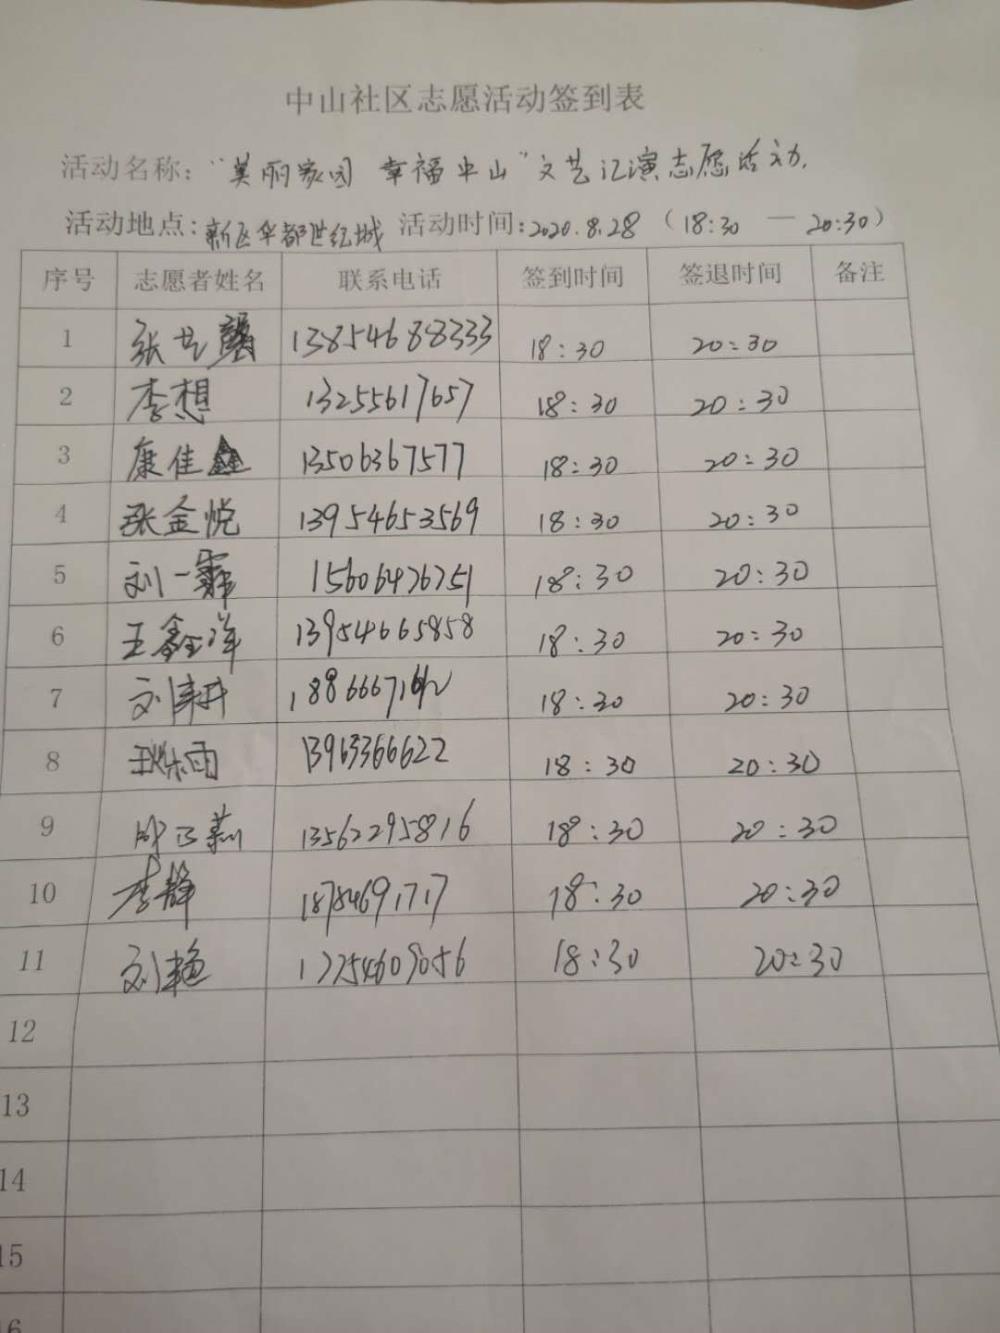 中山社区志愿活动签到表
活动名称：“美丽家园 幸福中山”文艺汇演志愿活动.
活动地点：新区华都世纪城 活动时间：2020.8.28（18:30 — 20:30）
序号 志愿者姓名 联系电话 签到时间 签退时间 备注
1 张艺馨 13854688333 18:30 20:30
2 李想 13255617657 18:30 20:30
3 康佳鑫 13506367577 18:30 20:30
4 张金悦 13954653569 18:30 20:30
5 刘一霏 15606476751 18:30 20:30
6 王鑫洋 13954665858 18:30 20:30
7 刘 18:30 20:30
8 雨 13963366622 18:30 20:30
9 13562295816 18:30 20:30
10 李静 18784691717 18:30 20:30
11 刘艳 17254609056 18:30 20:30
12
13
14
15
16